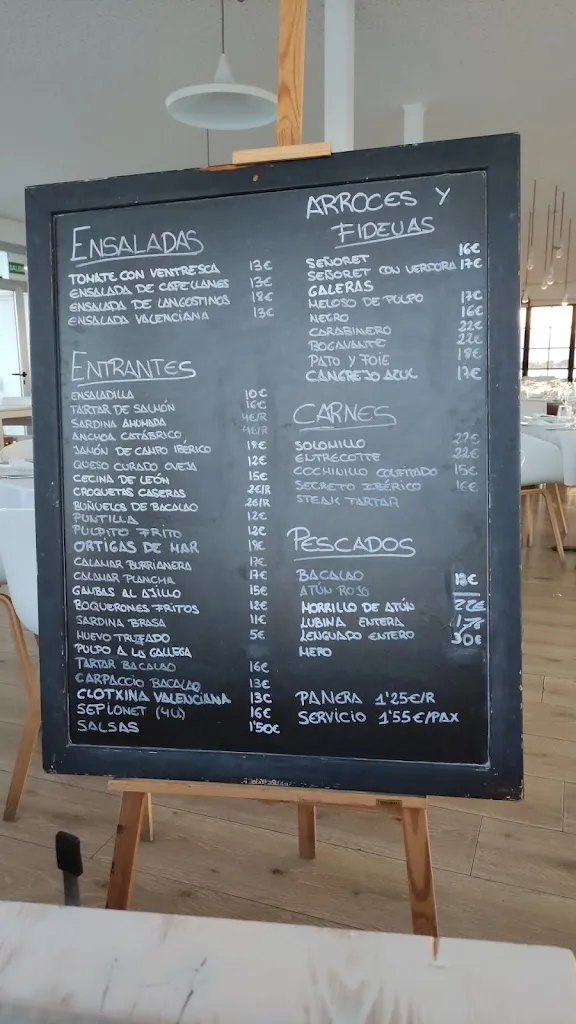 ENSALADAS
TOMATE CON VENTRESCA 13€
ENSALADA DE CAPELLANES 13€
ENSALADA DE LANGOSTINOS 18€
ENSALADA VALENCIANA 13€
ENTRANTES
ENSALADILLA 10€
TARTAR DE SALMÓN 16€
SARDINA AHUMADA 4€/R
ANCHOA CATÁBRICO 4€/R
JAMÓN DE CAMPO IBÉRICO 18€
QUESO CURADO OVEJA 12€
CECINA DE LEÓN 15€
CROQUETAS CASERAS 2€/R
BUÑUELOS DE BACALAO 2€/R
PUNTILLA 12€
PULPITO FRITO 12€
ORTIGAS DE MAR 18€
CALAMAR BURRIANERA 17€
CALAMAR PLANCHA 17€
GAMBAS AL AJILLO 15€
BOQUERONES FRITOS 12€
SARDINA BRASA 11€
HUEVO TRUFADO 5€
PULPO A LA GALLEGA
TARTAR BACALAO 16€
CARPACCIO BACALAO 13€
CLOTXINA VALENCIANA 13€
SEPIONET (4U) 16€
SALSAS 1'50€
ARROCES Y
FIDEUAS
SEÑORET 16€
SEÑORET CON VERDURA 17€
GALERAS
MELOSO DE PULPO 17€
NEGRO 16€
CARABINERO 22€
BOGAVANTE 22€
PATO Y FOIE 18€
CANGREJO AZUL 17€
CARNES
SOLOMILLO 27€
ENTRECOTTE 22€
COCHINILLO CONFITADO 15€
SECRETO IBÉRICO 16€
STEAK TARTAR
PESCADOS
BACALAO 18€
ATÚN ROJO
MORRILLO DE ATÚN 22€
LUBINA ENTERA
LENGUADO ENTERO 30€
MERO
PANERA 1'25€/R
SERVICIO 1'55€/PAX